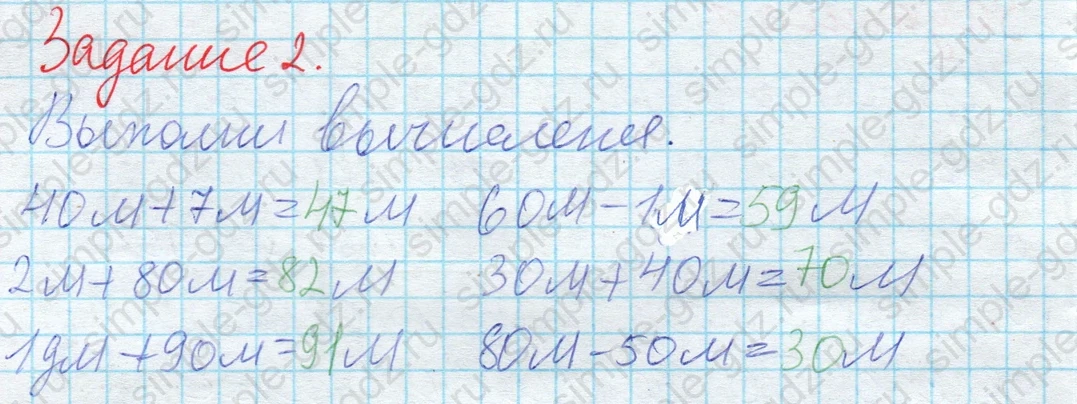 Задание 2.
Выполни вычисления.
40м+7м=47м 60м-1м=59м
2м+80м=82м 30м+40м=70м
1дм+90м=91м 80м-50м=30м
simple-gdz.ru